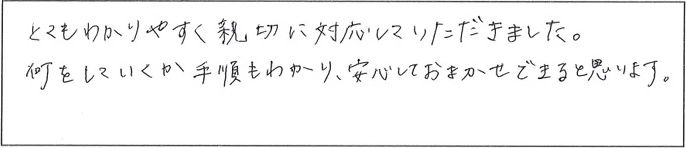 とてもわかりやすく親切に対応していただきました。
何をしていくか手順もわかり、安心しておまかせできると思います。